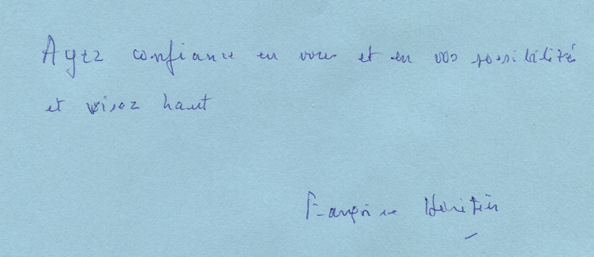 Ayez confiance en vous et en vos possibilités
et visez haut
Françoise Héritier